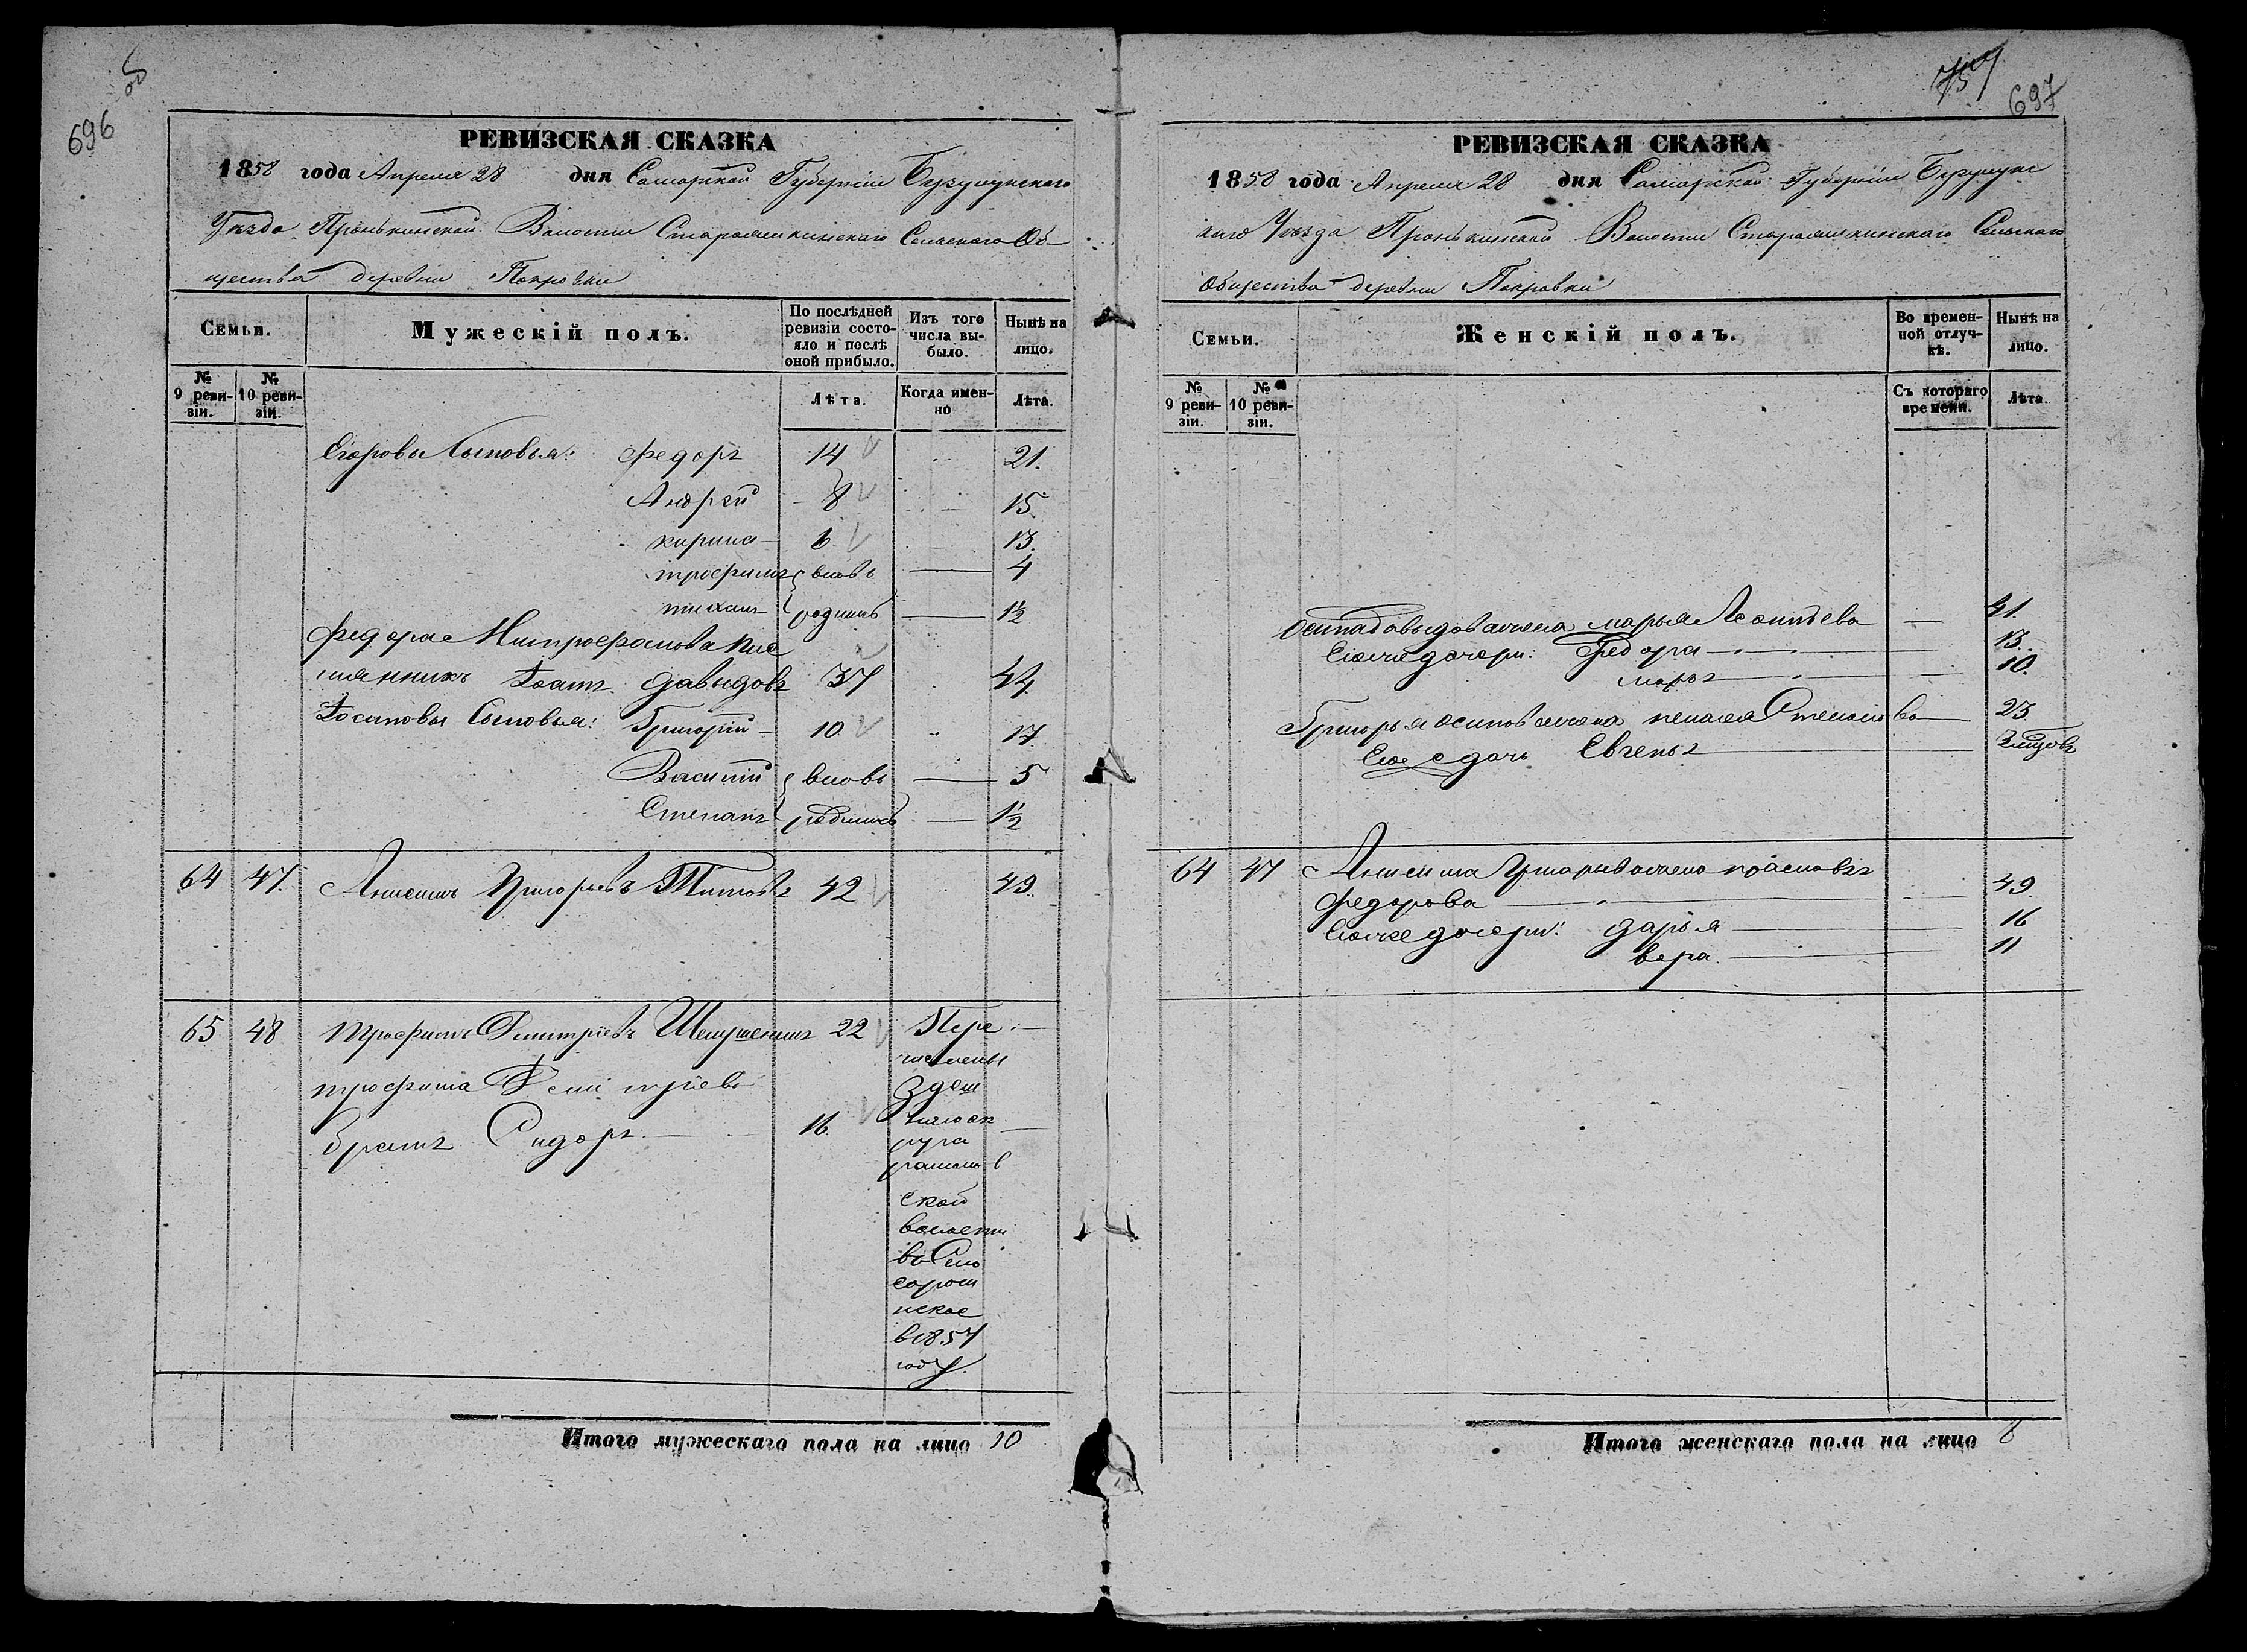 696
РЕВИЗСКАЯ СКАЗКА
1858 года Апреля 28 дня Самарской Губернии Бузулукского
Уезда Пронькинской Волости Сельского Об-
щества деревни Покровки
Семьи.
Мужескій полъ.
По послѣдней ревизіи состояло и послѣ оной прибыло.
Изъ того числа выбыло.
Нынѣ на лицо.
№ 9 ревизіи.
№ 10 ревизіи.
Лѣта.
Когда именно
Лѣта.
Егоровы Сыновья: Федоръ 14 21.
Андрей 8 15.
кирила 6 13.
трофимъ вновь 4
родились 1½
Федора Митрофанова пле
мянникъ Давыдовъ 37 44.
Сыновья: Григорій 10 17.
Василий вновь 5
Степанъ родились 1½
64 47. Анисимъ Григорьевъ Титовъ 42 49.
65 48 трофимъ Дмитріевъ 22 Пере
числены
трофима Дмитріева здеш
братъ Сидоръ 16. няго ок
руга
ской
волости
в Село
сорочи
нское
в 1857
году.
Итого мужескаго пола на лицо 10
697
РЕВИЗСКАЯ СКАЗКА
1858 года Апреля 28 дня Самарской Губернии Бузулукс
каго Уезда Пронькинской Волости Сельскаго
Общества деревни Покровки
Семьи.
Женскій полъ.
Во временной отлучкѣ.
Нынѣ на лицо.
№ 9 ревизіи.
№ 10 ревизіи.
Съ котораго времени.
Лѣта.
Осипа Давыдова жена марья Леонтьева 41.
Его же дочери: Федора 13.
марья 10.
Григорья осипова жена Степанова 23.
Его дочь Евгенья
64 47 Анисима Григорьева жена
федорова 49.
Его же дочери: Дарья 16
вера. 11
Итого женскаго пола на лицо 8